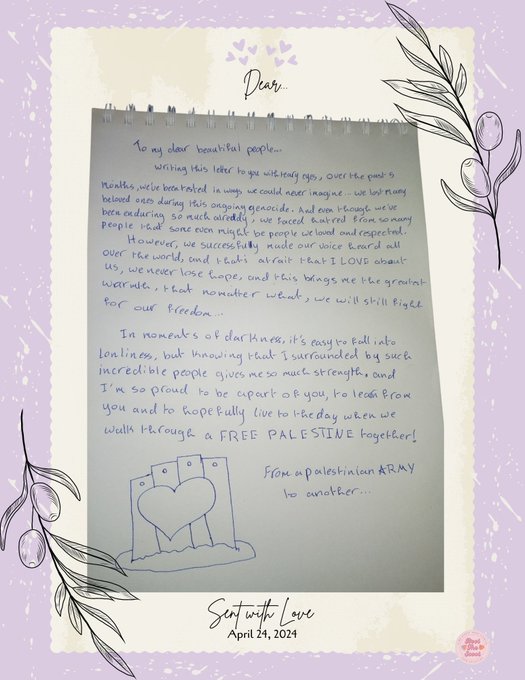 Dear...
To my dear beautiful people...
writing this letter to you with teary eyes, over the past 5
months, we've been tested in ways we could never imagine... we lost many
beloved ones during this ongoing genocide. And even though we've
been enduring so much alreddy, we faced hatred from so many
people that some even might be people we loved and respected.
However, we successfully made our voice heard all
over the world, and that's atrait that I LOVE about
us, we never lose hope, and this brings me the greatest
warmth, that nomatter what, we will still fight
for our freedom...
In moments of darkness, it's easy to fall into
lonliness, but knowing that I surrounded by such
incredible people gives me so much strength, and
I'm so proud to be apart of you, to learn from
you and to hopefully live to the day when we
walk through a FREE PALESTINE together!
From a palestinian ARMY
to another...
Sent with Love
April 24, 2024